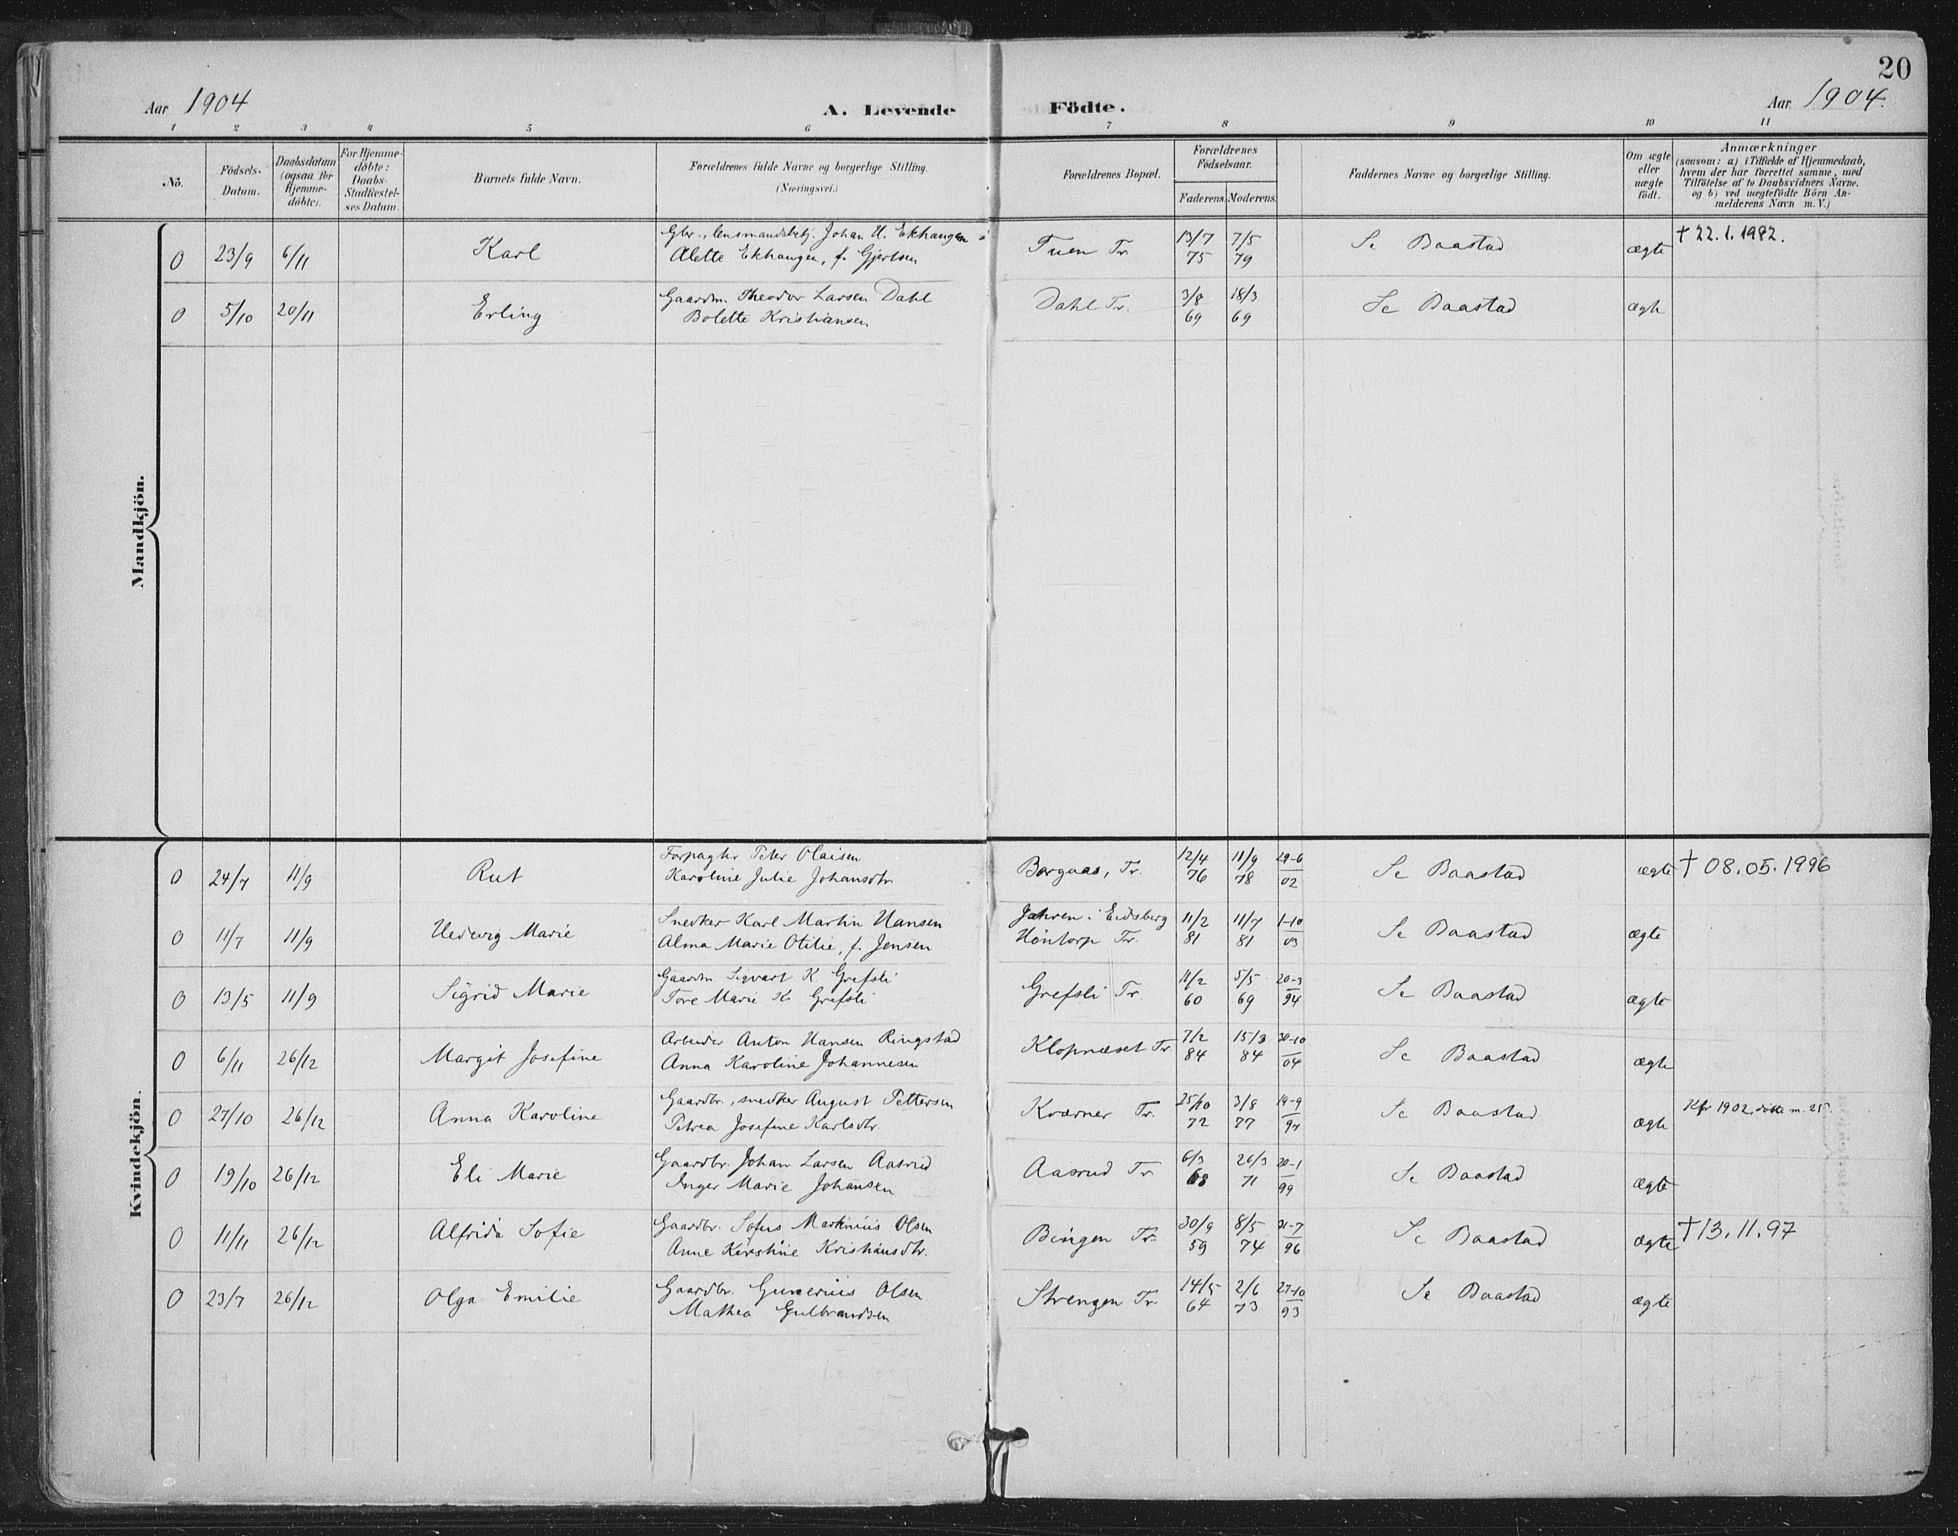 20
Aar 1904 A. Levende Födte. Aar 1904.
1 2 3 4 5 6 7 8 9 10 11
No. Födsels-Datum. Daabsdatum (ogsaa for Hjemme-döbte). For Hjemme-döbte: Daabs-Stadfæstel-ses Datum. Barnets fulde Navn. Forældrenes fulde Navne og borgerlige Stilling. (Næringsvei.) Forældrenes Bopæl. Forældrenes Födselsaar. Faderens. Moderens. Faddernes Navne og borgerlige Stilling. Om ægte eller uægte födt. Anmærkninger (saasom: a) i Tilfælde af Hjemmedaab, hvem der har forrettet samme, med Tilföielse af to Daabsvidners Navne, og b) ved uægtefödte Börn An-melderens Navn m. V.)
Mandkjön.
0 23/9 6/11 Karl Gbr., lensmandsbetj. Johan H. Ekhaugen Tuen Tr. 13/7 7/5 Se Baastad ægte † 22.1.1982.
Alette Ekhaugen, f. Gjertsen 75 79
0 5/10 20/11 Erling Gaardm. Theodor Larsen Dahl Dahl Tr. 3/8 18/3 Se Baastad ægte
Bolette Kristiansen 69 69
Kvindekjön.
0 24/7 11/9 Rut Forpagter Peter Olaisen Borgaas, Tr. 12/4 11/9 29-6 Se Baastad ægte † 08.05.1996
Karoline Julie Johansdtr. 76 78 02
0 11/7 11/9 Hedevig Marie Snedker Karl Martin Hansen Jahren i Eidsberg 11/2 11/7 1-10 Se Baastad ægte
Alma Marie Otilie, f. Jensen Höntorp Tr. 81 81 03
0 13/5 11/9 Sigrid Marie Gaardm. Sigvart K Grefsli Grefsli Tr. 11/2 5/5 20-3 Se Baastad ægte
Tore Marie K. Grefsli 60 69 94
0 6/11 26/12 Margit Josefine Arbeider Anton Hansen Ringstad Klopnæset Tr. 7/2 15/3 30-10 Se Baastad ægte
Anna Karoline Johannesen 84 84 04
0 27/10 26/12 Anna Karoline Gaardbr., snedker August Pettersen Kværner Tr. 25/10 3/8 19-9 Se Baastad ægte Kfr 1902, döbte m. 25.
Petrea Josefine Karlsdtr. 72 77 97
0 19/10 26/12 Eli Marie Gaardbr. Johan Larsen Aasrud Aasrud Tr. 6/3 26/3 20-1 Se Baastad ægte
Inger Marie Johansen 68 71 99
0 11/11 26/12 Alfrida Sofie Gaardbr. Sofus Martinius Olsen Bingen Tr. 30/9 8/5 21-7 Se Baastad ægte † 13.11.97
Anne Kirstine Kristiansdtr. 59 74 96
0 23/7 26/12 Olga Emilie Gaardbr. Gunerius Olsen Strengen Tr. 14/5 2/6 27-10 Se Baastad ægte
Mathea Gulbrandsen 64 73 93